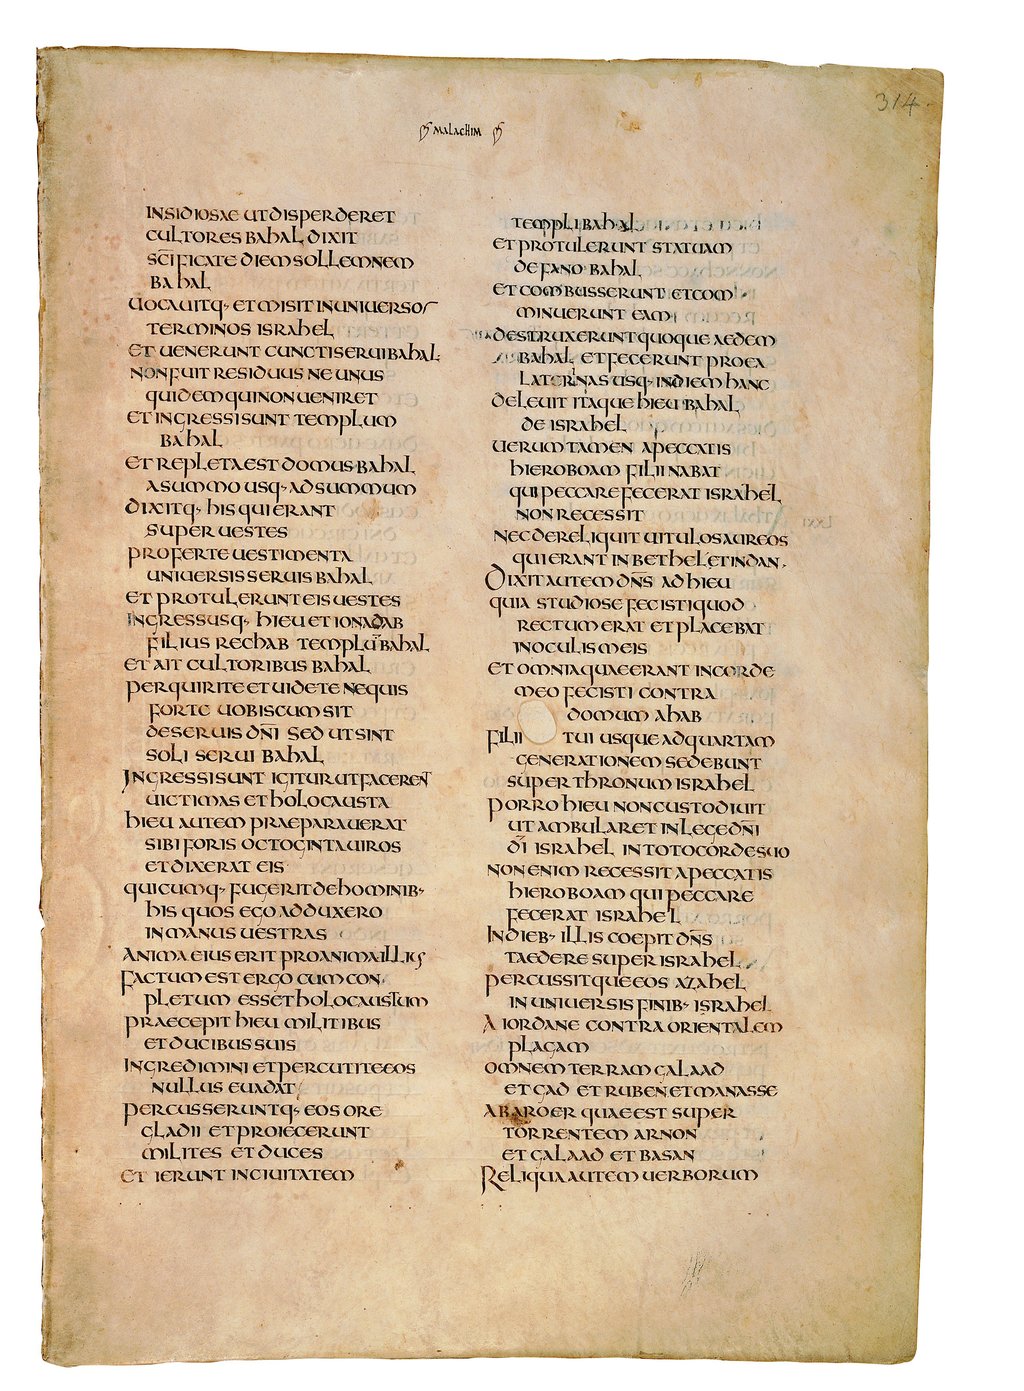 314
MALACHIM
INSIDIOSAE UT DISPERDERET
CULTORES BAHAL DIXIT
SCĪFICATE DIEM SOLLEMNEM
BAHAL
UOCAUITQ· ET MISIT IN UNIUERSOS
TERMINOS ISRAHEL
ET UENERUNT CUNCTI SERUI BAHAL
NON FUIT RESIDUUS NE UNUS
QUIDEM QUI NON UENIRET
ET INGRESSI SUNT TEMPLUM
BAHAL
ET REPLETA EST DOMUS BAHAL
A SUMMO USQ· AD SUMMUM
DIXITQ· HIS QUI ERANT
SUPER UESTES
PROFERTE UESTIMENTA
UNIUERSIS SERUIS BAHAL
ET PROTULERUNT EIS UESTES
INGRESSUSQ· HIEU ET IONADAB
FILIUS RECHAB TEMPLŪ BAHAL
ET AIT CULTORIBUS BAHAL
PERQUIRITE ET UIDETE NE QUIS
FORTE UOBISCUM SIT
DE SERUIS DN̄I SED UT SINT
SOLI SERUI BAHAL
INGRESSI SUNT IGITUR UT FACERENT
UICTIMAS ET HOLOCAUSTA
HIEU AUTEM PRAEPARAUERAT
SIBI FORIS OCTOGINTA UIROS
ET DIXERAT EIS
QUICUMQ· FUGERIT DE HOMINIB·
HIS QUOS EGO ADDUXERO
IN MANUS UESTRAS
ANIMA EIUS ERIT PRO ANIMA ILLIUS
FACTUM EST ERGO CUM CON
PLETUM ESSET HOLOCAUSTUM
PRAECEPIT HIEU MILITIBUS
ET DUCIBUS SUIS
INGREDIMINI ET PERCUTITE EOS
NULLUS EUADAT
PERCUSSERUNTQ· EOS ORE
GLADII ET PROIECERUNT
MILITES ET DUCES
ET IERUNT IN CIUITATEM
TEMPLI BAHAL
ET PROTULERUNT STATUAM
DE FANO BAHAL
ET COMBUSSERUNT ET COM
MINUERUNT EAM
DESTRUXERUNT QUOQUE AEDEM
BAHAL ET FECERUNT PRO EA
LATERNAS USQ· IN DIEM HANC
DELEUIT ITAQUE HIEU BAHAL
DE ISRAHEL
UERUM TAMEN A PECCATIS
HIEROBOAM FILII NABAT
QUI PECCARE FECERAT ISRAHEL
NON RECESSIT
NEC DERELIQUIT UITULOS AUREOS
QUI ERANT IN BETHEL ET IN DAN
DIXIT AUTEM DN̄S AD HIEU
QUIA STUDIOSE FECISTI QUOD
RECTUM ERAT ET PLACEBAT
IN OCULIS MEIS
ET OMNIA QUAE ERANT IN CORDE
MEO FECISTI CONTRA
DOMUM AHAB
FILII TUI USQUE AD QUARTAM
GENERATIONEM SEDEBUNT
SUPER THRONUM ISRAHEL
PORRO HIEU NON CUSTODIUIT
UT AMBULARET IN LEGE DN̄I
DĪ ISRAHEL IN TOTO CORDE SUO
NON ENIM RECESSIT A PECCATIS
HIEROBOAM QUI PECCARE
FECERAT ISRAHEL
IN DIEB· ILLIS COEPIT DN̄S
TAEDERE SUPER ISRAHEL
PERCUSSITQUE EOS AZAHEL
IN UNIUERSIS FINIB· ISRAHEL
A IORDANE CONTRA ORIENTALEM
PLAGAM
OMNEM TERRAM GALAAD
ET GAD ET RUBEN ET MANASSE
AB AROER QUAE EST SUPER
TORRENTEM ARNON
ET GALAAD ET BASAN
RELIQUA AUTEM UERBORUM